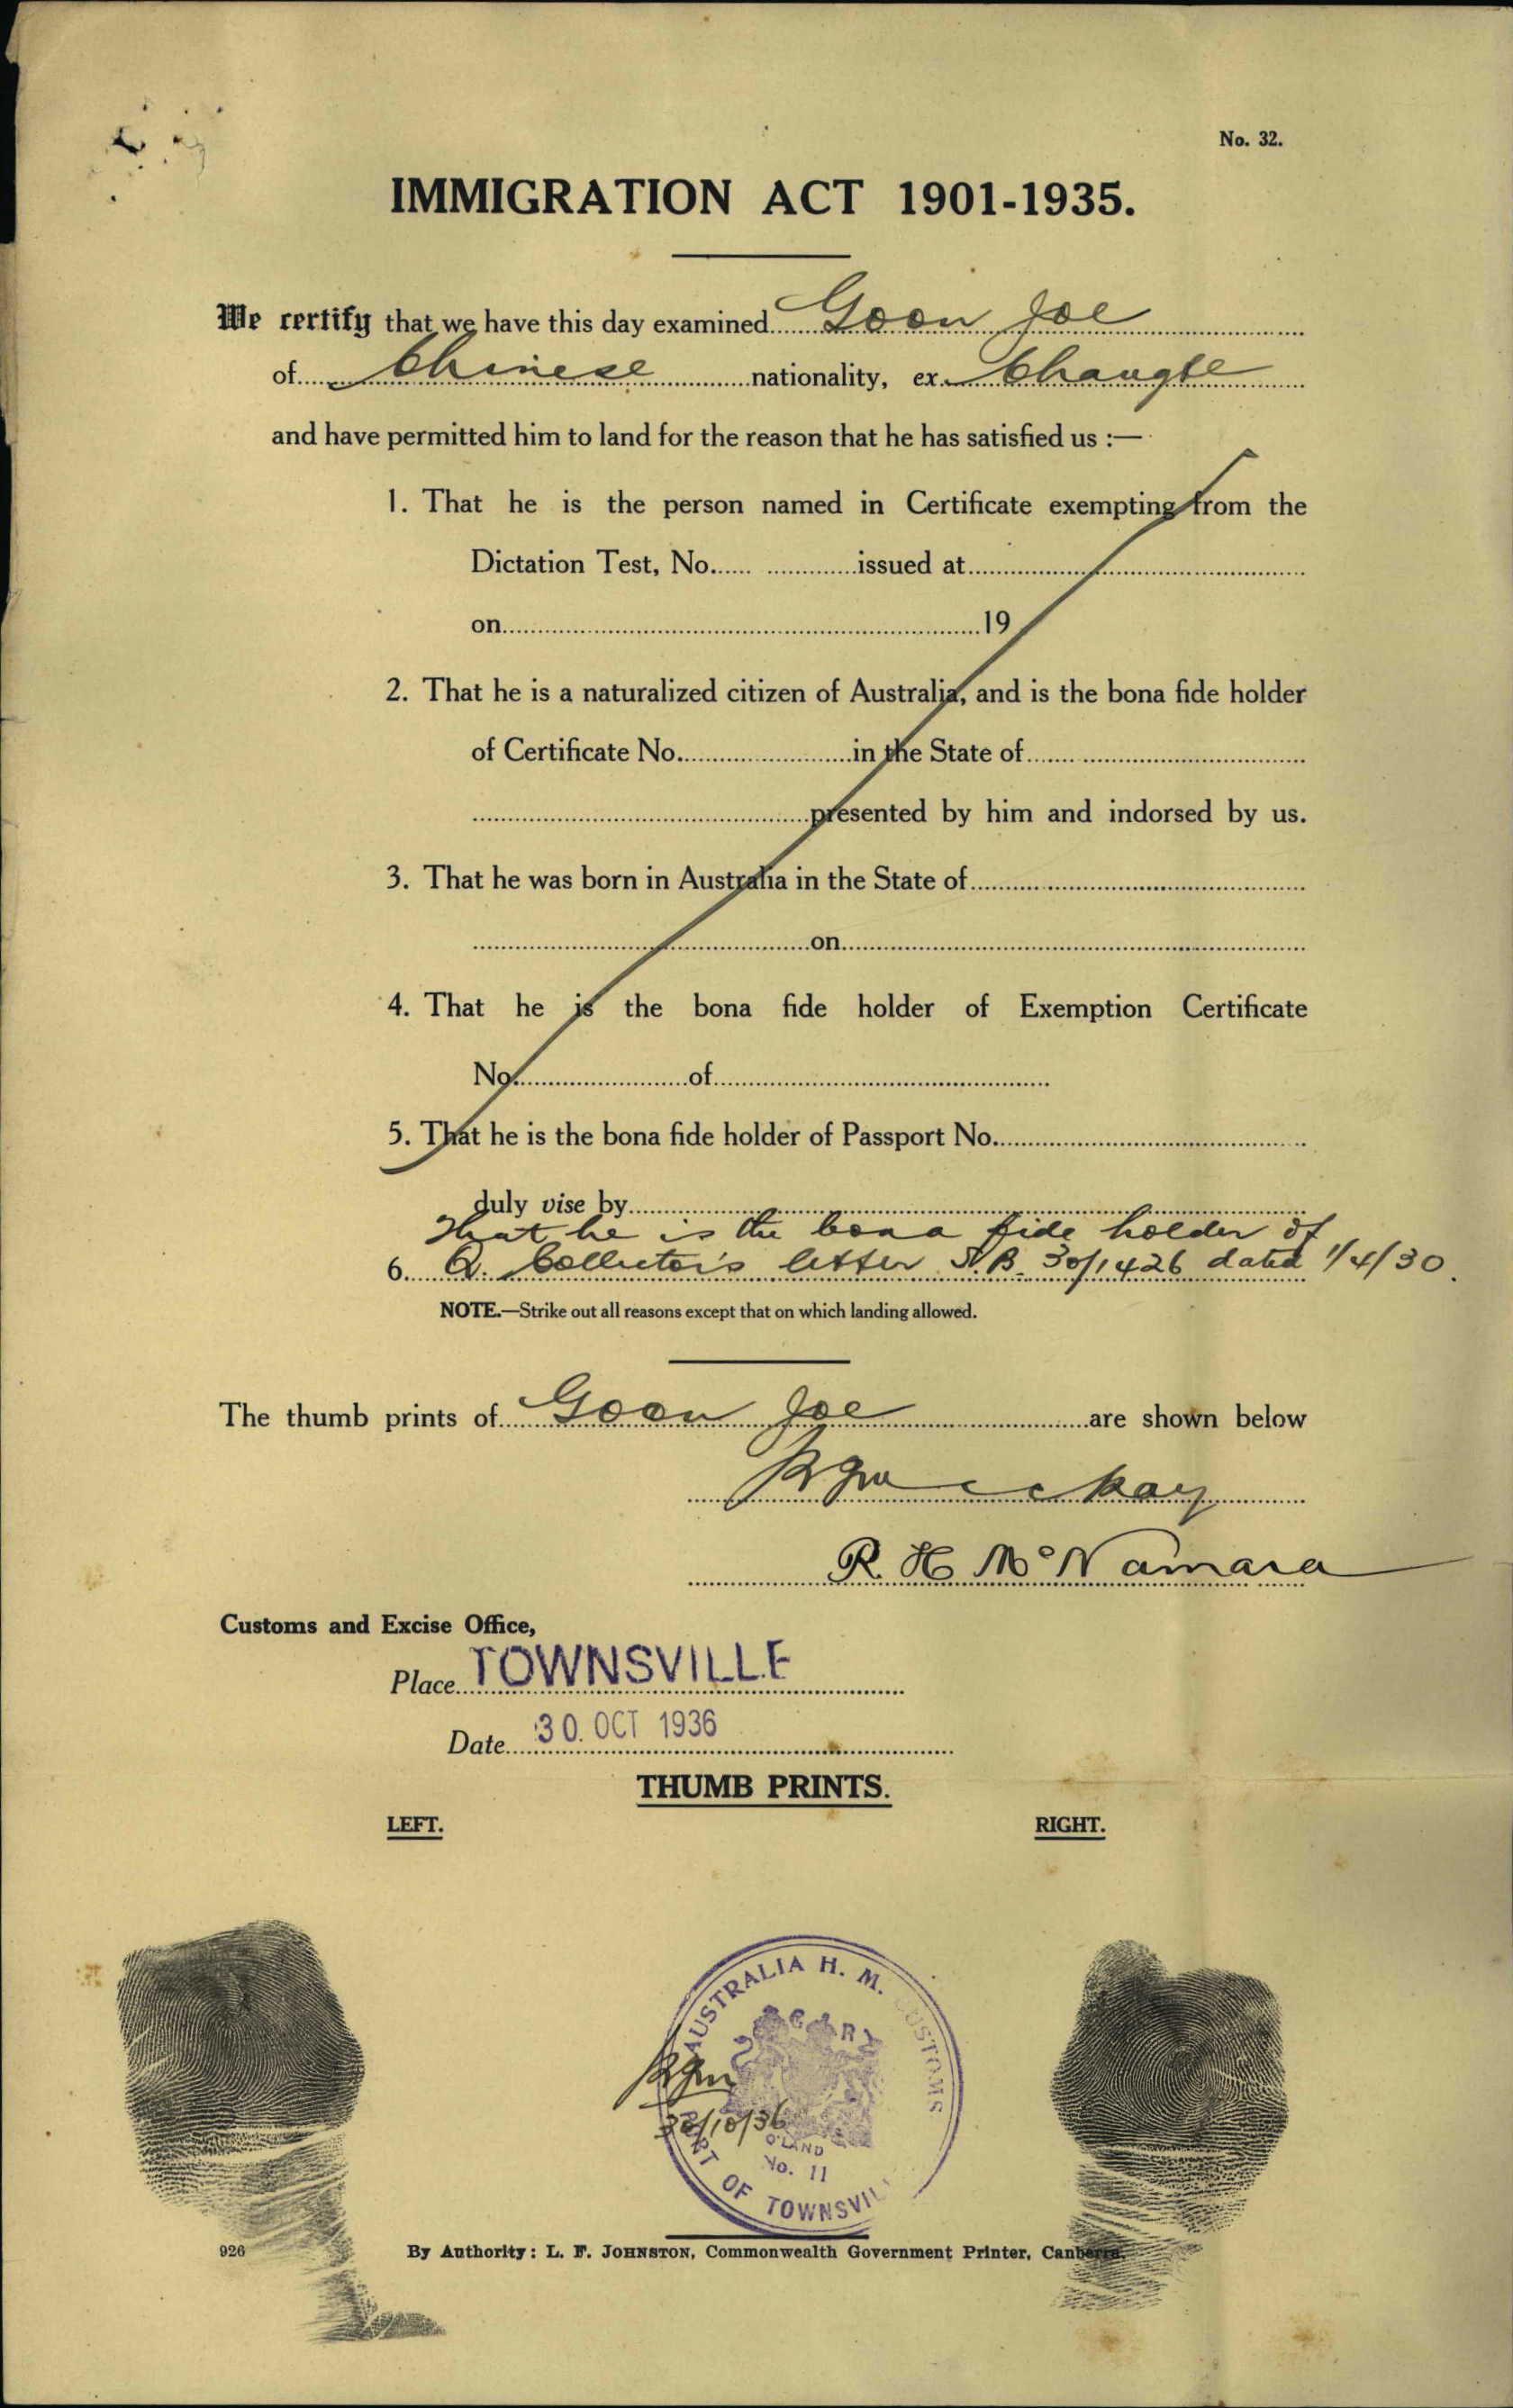 No. 32.
IMMIGRATION ACT 1901-1935.
We certify that we have this day examined Goon Joe
of Chinese nationality, ex. Changte
and have permitted him to land for the reason that he has satisfied us :—
1. That he is the person named in Certificate exempting from the
Dictation Test, No. issued at
on 19
2. That he is a naturalized citizen of Australia, and is the bona fide holder
of Certificate No. in the State of
presented by him and indorsed by us.
3. That he was born in Australia in the State of
on
4. That he is the bona fide holder of Exemption Certificate
No. of
5. That he is the bona fide holder of Passport No.
duly vise by
that he is the bona fide holder of
6. Q. Collector's letter S.B. 30/1426 dated 1/4/30.
NOTE.—Strike out all reasons except that on which landing allowed.
The thumb prints of Goon Joe are shown below
R. H. McNamara
Customs and Excise Office,
Place TOWNSVILLE
Date 30. OCT 1936
THUMB PRINTS.
LEFT. RIGHT.
AUSTRALIA H. M. CUSTOMS
30/10/36
Q'LAND
No. 11
PORT OF TOWNSVIL
926 By Authority: L. F. JOHNSTON, Commonwealth Government Printer, Canberra.